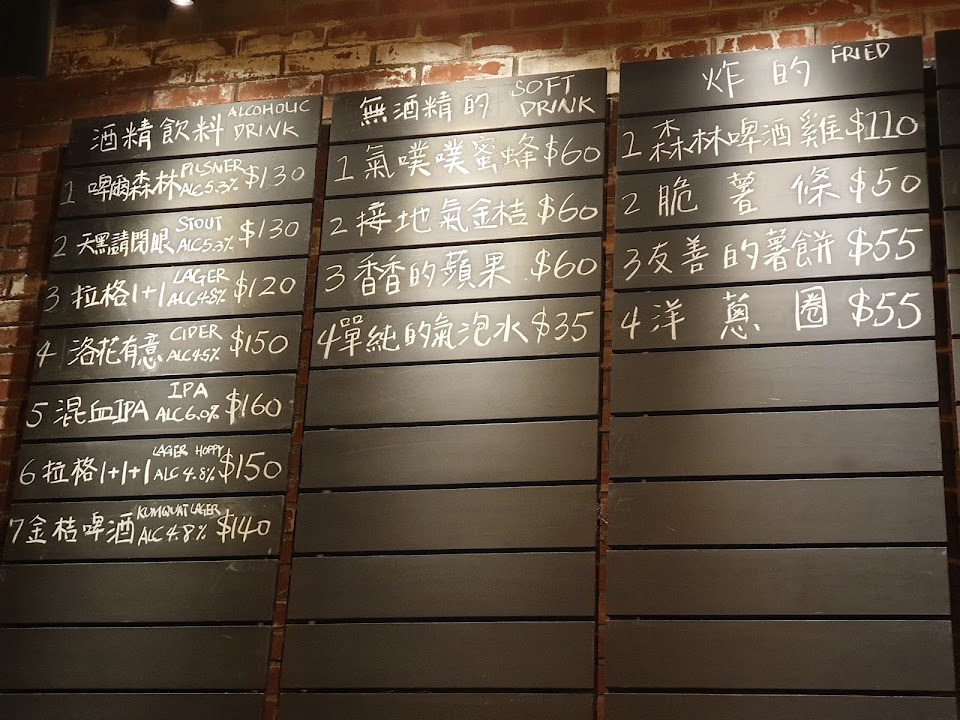 酒精飲料 ALCOHOLIC DRINK
1 啤爾森林 PILSNER ALC5.3% $130
2 天黑請閉眼 STOUT ALC5.3% $130
3 拉格1+1 LAGER ALC4.8% $120
4 洛花有意 CIDER ALC4.5% $150
5 混血IPA IPA ALC6.0% $160
6 拉格1+1+1 LAGER HOPPY ALC4.8% $150
7 金桔啤酒 KUMQUAT LAGER ALC4.8% $140
無酒精的 SOFT DRINK
1 氣噗噗蜜蜂 $60
2 接地氣金桔 $60
3 香香的蘋果 $60
4 單純的氣泡水 $35
炸的 FRIED
1 森林啤酒雞 $110
2 脆薯條 $50
3 友善的薯餅 $55
4 洋蔥圈 $55